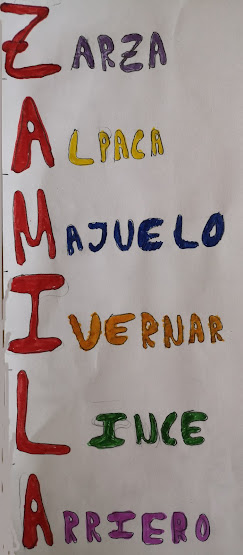 ZARZA
ALPACA
MAJUELO
IVERNAR
LINCE
ARRIERO